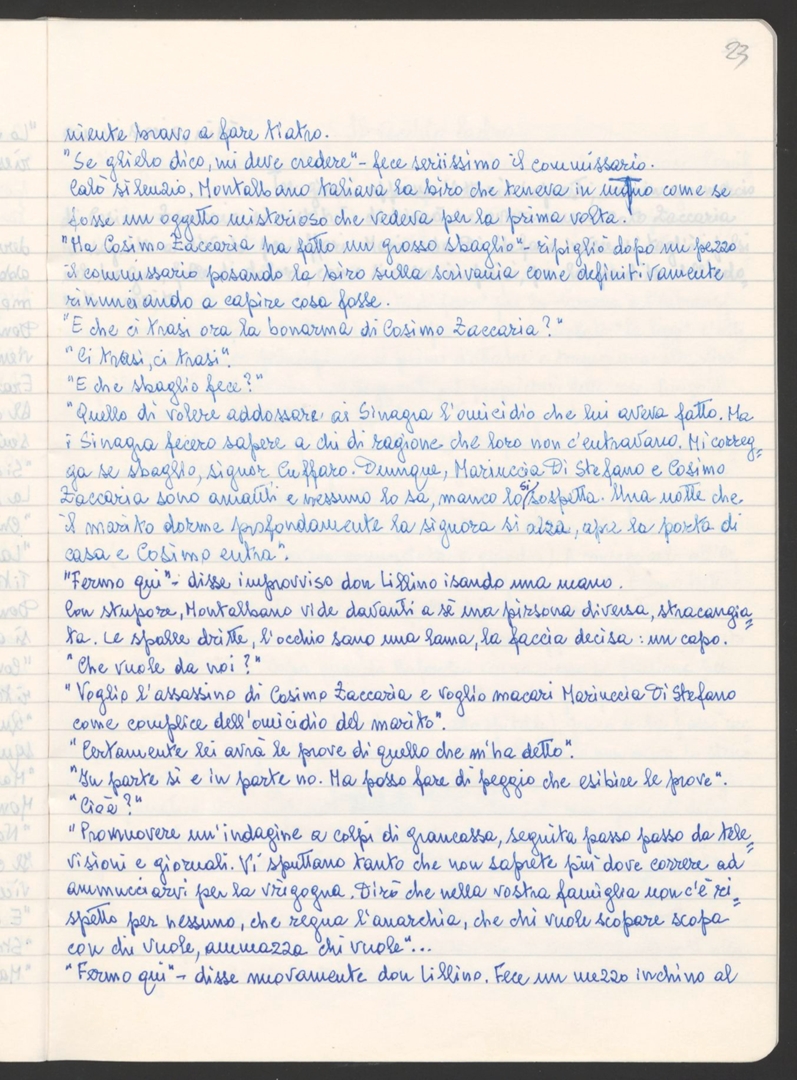 23
niente bravo a fare tiatro.
"Se glielo dico, mi deve credere" - fece seriissimo il commissario.
Calò silenzio, Montalbano taliava la biro che teneva in mano come se
fosse un oggetto misterioso che vedeva per la prima volta.
"Ma Cosimo Zaccaria ha fatto un grosso sbaglio" - ripigliò dopo un pezzo
il commissario posando la biro sulla scrivania come definitivamente
rinunciando a capire cosa fosse.
"E che ci trasi ora la bonarma di Cosimo Zaccaria?"
"Ci trasi, ci trasi".
"E che sbaglio fece?"
"Quello di volere addossare ai Sinagra l'omicidio che lui aveva fatto. Ma
i Sinagra fecero sapere a chi di ragione che loro non c'entravano. Mi correg=
ga se sbaglio, signor Cuffaro. Dunque, Mariuccia Di Stefano e Cosimo
Zaccaria sono amanti e nessuno lo sa, manco lo si sospetta. Una notte che
il marito dorme profondamente la signora si alza, apre la porta di
casa e Cosimo entra".
"Fermo qui" - disse improvviso don Lillino isando una mano.
Con stupore, Montalbano vide davanti a sè una pirsona diversa, stracangia=
ta. Le spalle dritte, l'occhio sano una lama, la faccia decisa: un capo.
"Che vuole da noi?"
"Voglio l'assassino di Cosimo Zaccaria e voglio macari Mariuccia Di Stefano
come complice dell'omicidio del marito".
"Certamente lei avrà le prove di quello che m'ha detto".
"In parte sì e in parte no. Ma posso fare di peggio che esibire le prove".
"Cioè?"
"Promuovere un'indagine a colpi di grancassa, seguita passo passo da tele=
visioni e giornali. Vi sputtano tanto che non saprete più dove correre ad
ammucciarvi per la vrigogna. Dirò che nella vostra famiglia non c'è ri=
spetto per nessuno, che regna l'anarchia, che chi vuole scopare scopa
con chi vuole, ammazza chi vuole"...
"Fermo qui" - disse nuovamente don Lillino. Fece un mezzo inchino al